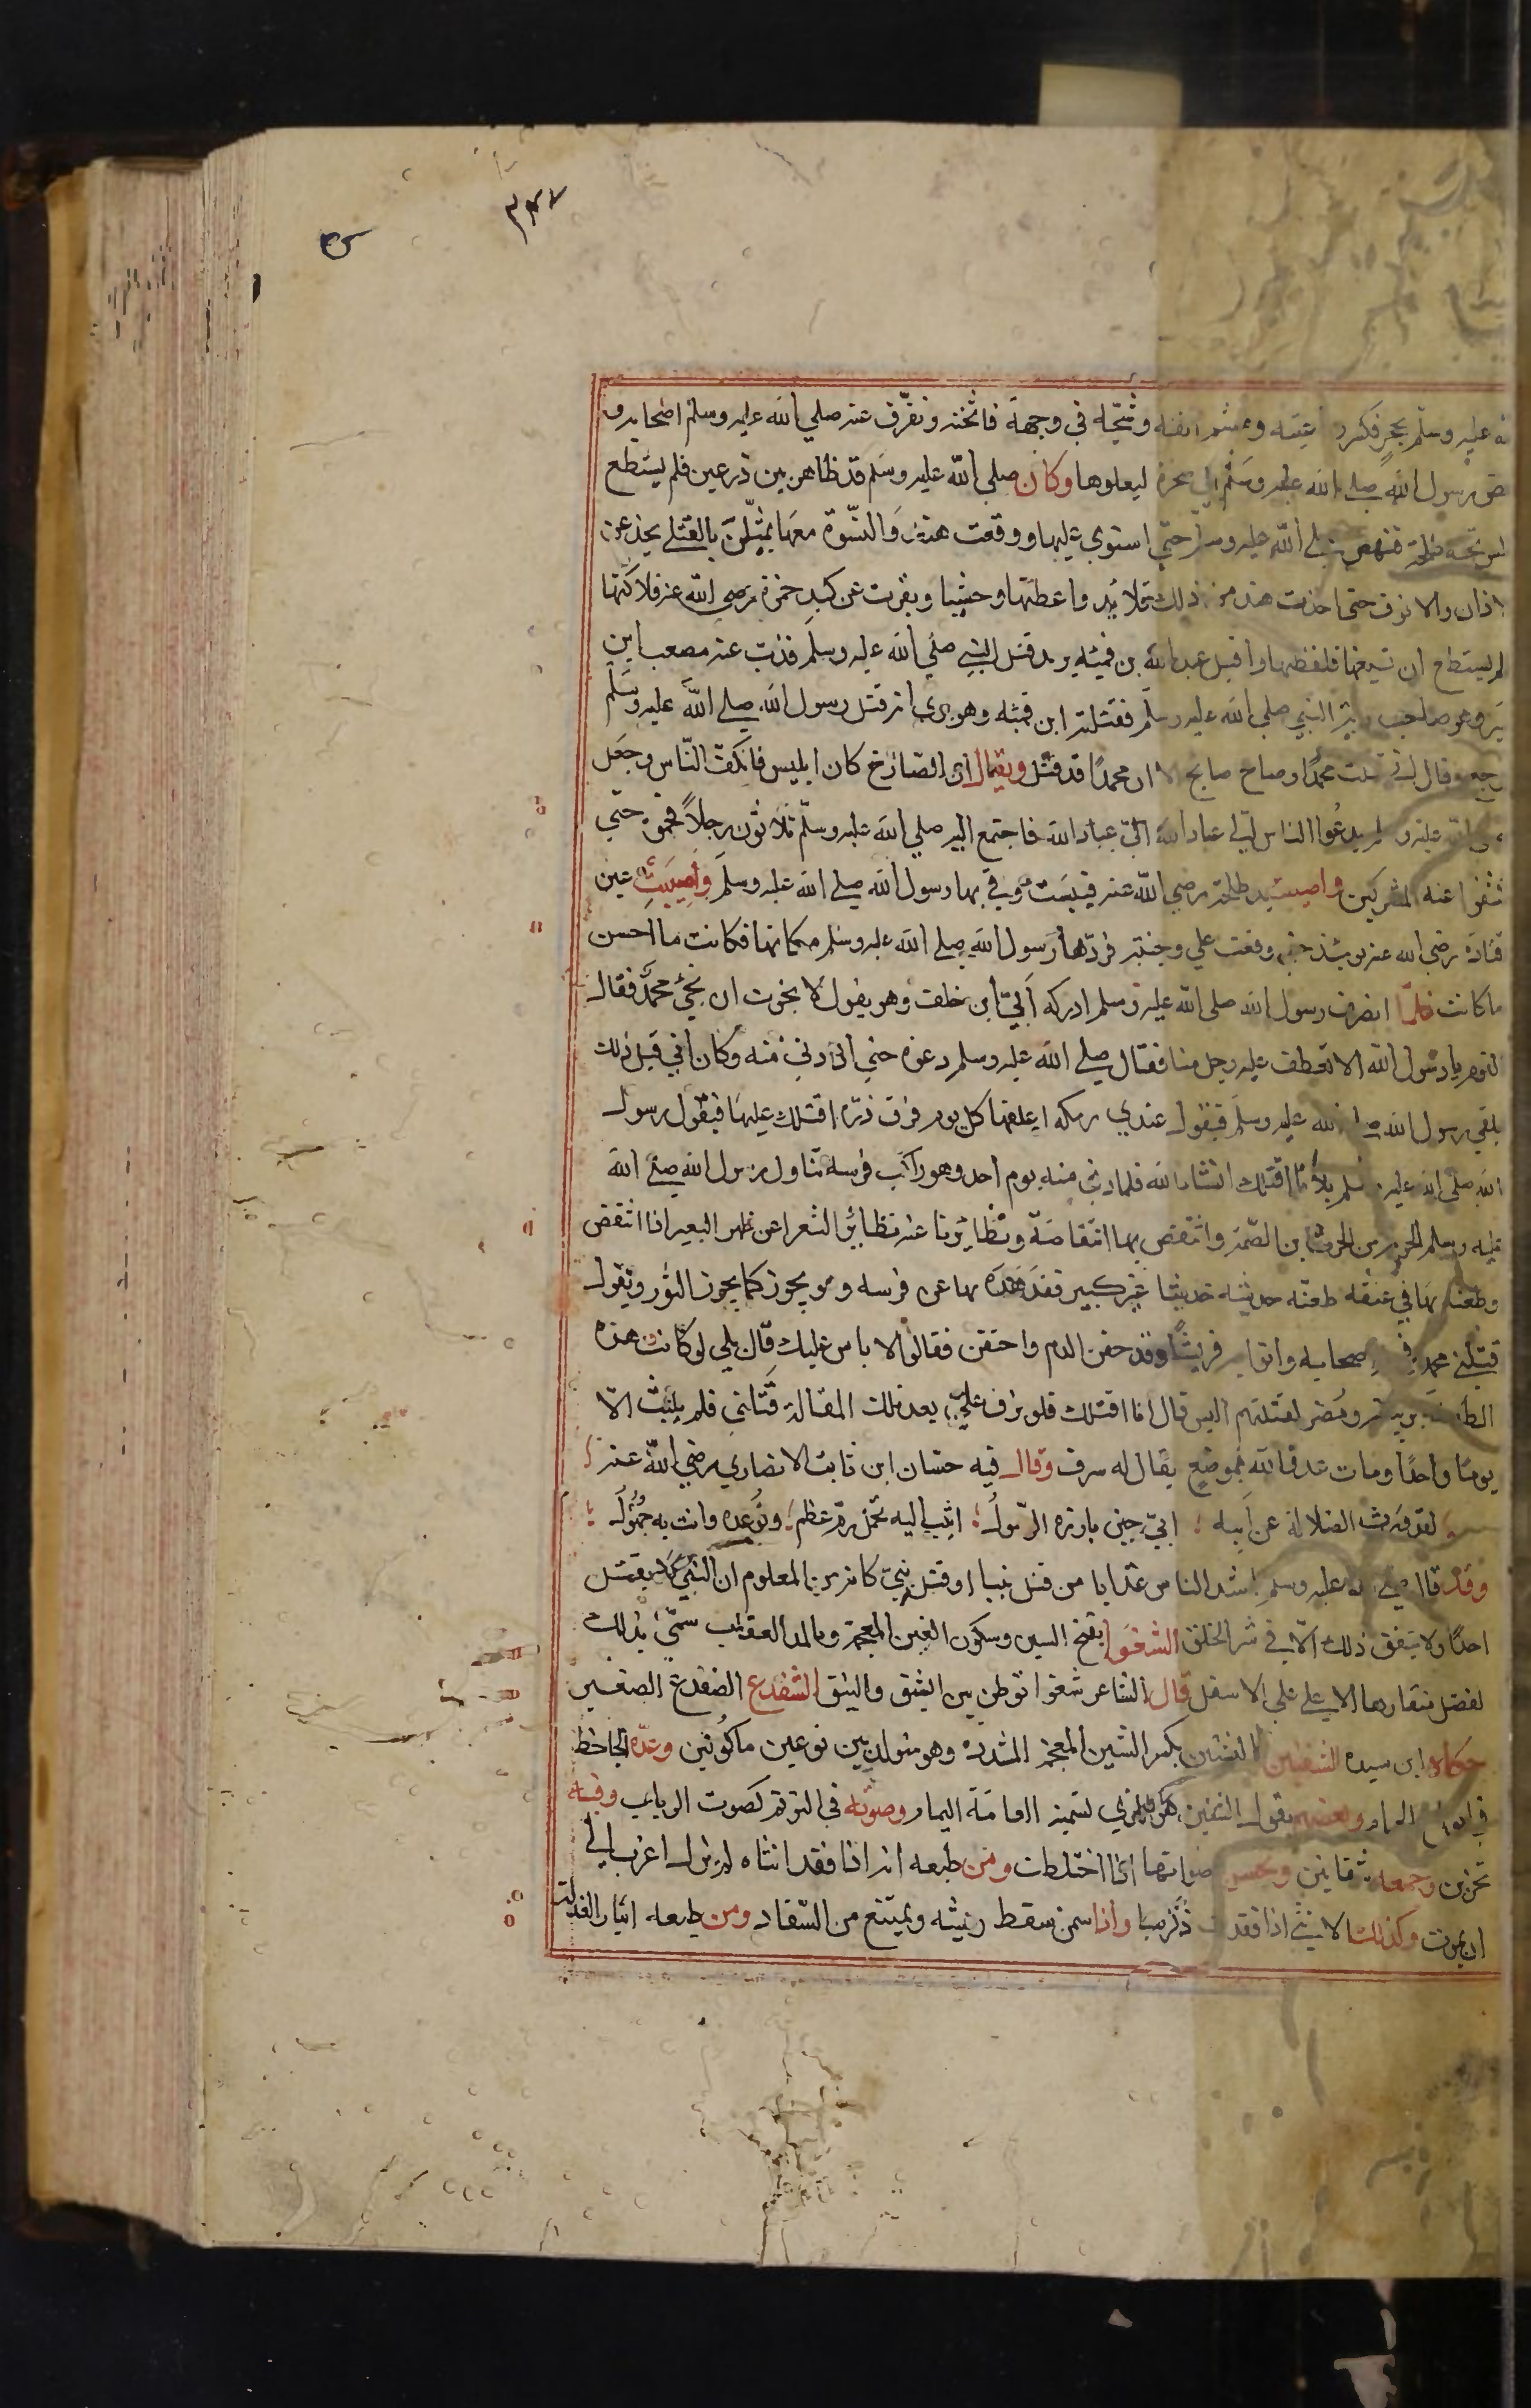 ٣٤٧
ه عليه وسلم بحجر فكسر رباعيته وهشم انفه وشجه في وجهه فاثخنه وتفرق عنه صلي الله عليه وسلم اصحابه و
ض رسول الله صلي الله عليه وسلم الي صخرة ليعلوها وكان صلي الله عليه وسلم قد ظاهر بين درعين فلم يستطع
تحته طلحة فنهض صلي الله عليه وسلم حتي استوي عليها ووقعت هند والنسوة معها يمثلن بالقتلي يجذعن
الاذان والانوف حتي اخذت هند من ذلك قلايد واعطتها وحشيا وبقرت عن كبد حمزة رضي الله عنه فلاكتها
لم يستطع ان تسيغها فلفظتها واقبل عبد الله بن قميئه يريد قتل النبي صلي الله عليه وسلم فذب عنه مصعب ابن
ير وهو صاحب راية النبي صلي الله عليه وسلم فقتله ابن قميئه وهو يري انه قتل رسول الله صلي الله عليه وسلم
رجع وقال اني قتلت محمدا وصاح صايح الا ان محمدا قد قتل ويقال ان الصارخ كان ابليس فانكفّ الناس وجعل
صلي الله عليه وسلم يدعوا الناس الي عباد الله الي عباد الله فاجتمع اليه صلي الله عليه وسلم ثلاثون رجلا فحموه حتي
كشفوا عنه المشركين واصيبت يد طلحة رضي الله عنه فيبست وقي بها رسول الله صلي الله عليه وسلم واصيبت عين
قتادة رضي الله عنه يومئذ حتي وقعت علي وجنته فردها رسول الله صلي الله عليه وسلم مكانها فكانت ما احسن
ما كانت فلما انصرف رسول الله صلى الله عليه وسلم ادركه ابي ابن خلف وهو يقول لا نجوت ان نجي محمد فقال
القوم يا رسول الله الا نعطف عليه رجل منا فقال صلي الله عليه وسلم دعوه حتي اذا دني منه وكان ابي قبل ذلك
يلقي رسول الله صلي الله عليه وسلم فيقول عندي رمكه اعلفها كل يوم فرق ذره اقتلك عليها فيقول رسول
الله صلى الله عليه وسلم بل انا اقتلك انشا الله فلما دني منه يوم احد وهو راكب فرسه تناول رسول الله صلي الله
عليه وسلم الحربه من الحرث ابن الصمة وانتقض بها انتقاضة وتطايرنا عنه تطاير الشعرا عن ظهر البعير اذا انتقض
وطعنه بها في عنقه طعنه خدشه خدشا غير كبير فقدهده بها عن فرسه وهو يخور كما يخور الثور ويقول
قتلني محمد في اصحابه واتوا قريشا وقد حقن الدم واحتقن فقالوا لا باس عليك قال بلي لو كانت هذه
الطعنه بربيعة ومضر لقتلتهم اليس قال انا اقتلك فلو بزق علي بعد تلك المقالة قتلني فلم يلبث الا
يوما واحدا ومات عدو الله بموضع يقال له سرف وقال فيه حسان ابن ثابت الانصاري رضي الله عنه
لقد ورث الضلالة عن ابيه ؛ ابي حين بارزه الرسول ؛ اتيت اليه تحمل رم عظم ؛ وتوعده وانت به جهول ؛
وقد قال صلى الله عليه وسلم اشد الناس عذابا من قتل نبيا او قتل نبي كانه من المعلوم ان النبي لا يقتل
احدا ولا يتفق ذلك الا في شر الخلق الشغوا بفتح السين وسكون الغين المعجمة وبالمد العقاب سمي بذلك
لفضل منقارها الاعلي علي الاسفل قال الشاعر شغوا توطن بين الشيق والنيق الشفدع الضفدع الصغير
حكاه ابن سيده الشفنين الشفنين بكسر الشين المعجمة المشدده وهو متولد بين نوعين ماكولين وعده الجاحظ
في انواع الحمام وبعضهم يقول الشفنين هو الذي تسميه العامة اليمام وصوته في الترنم كصوت الرباب وفيه
تحزين وجمعه شفانين وتحسن اصواتها اذا اختلطت ومن طبعه انه اذا فقد انثاه لم يزل اعزب الي
ان يموت وكذلك الانثي اذا فقدت ذكرها واذا سمن سقط ريشه ويمتنع من السفاد ومن طبعه ايثار العزلة